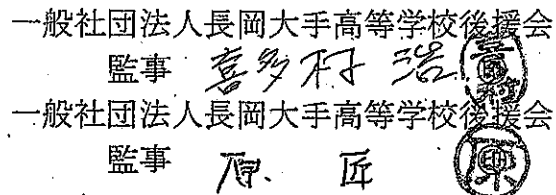 一般社団法人長岡大手高等学校後援会
監事 喜多村 浩
一般社団法人長岡大手高等学校後援会
監事 原 匠
原